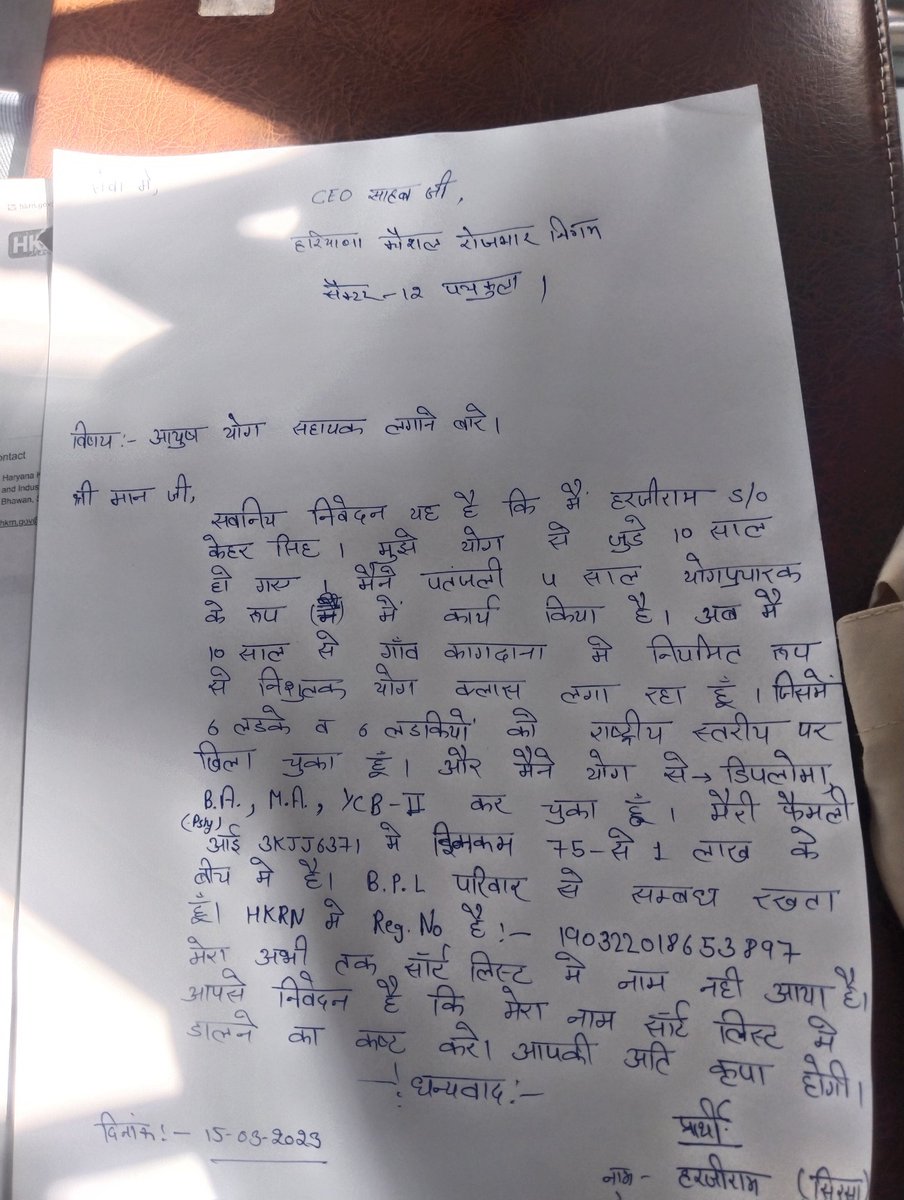 सेवा मे,
CEO साहब जी,
हरियाणा कौशल रोजगार निगम
सैक्टर-12 पचकुला ।
विषय:- आयुष योग सहायक लगाने बारे।
श्री मान जी,
सवनिय निवेदन यह है कि मैं हरजीराम S/O
केहर सिह । मुझे योग से जुडे 10 साल
हो गए । मैने पतंजली 5 साल योगप्रचारक
के रूप में कार्य किया है। अब मै
10 साल से गाँव कागदाना मे नियमित रूप
से निशुलक योग क्लास लगा रहा हूँ । जिसमें
6 लडके व 6 लडकियों को राष्ट्रीय स्तरीय पर
खिला चुका हूँ। और मैने योग से→ डिपलोमा,
B.A., M.A., YCB-II कर चुका हूँ। मेरी फैमली
आई 3KJJ6371 मे इनकम 75-से 1 लाख के
बीच मे है। B.P.L परिवार से सम्बध रखता
हूँ। HKRN मे Reg. No है :- 190322018653897
मेरा अभी तक सॉर्ट लिस्ट मे नाम नही आया है।
आपसे निवेदन है कि मेरा नाम सॉर्ट लिस्ट मे
डालने का कष्ट करे। आपकी अति कृपा होगी।
धन्यवाद:-
दिनांक:- 15-03-2023
प्रार्थी:
नाम- हरजीराम (सिरसा)
HK
ontact
Haryana
and Indus
Bhawan,
hkrn.gov